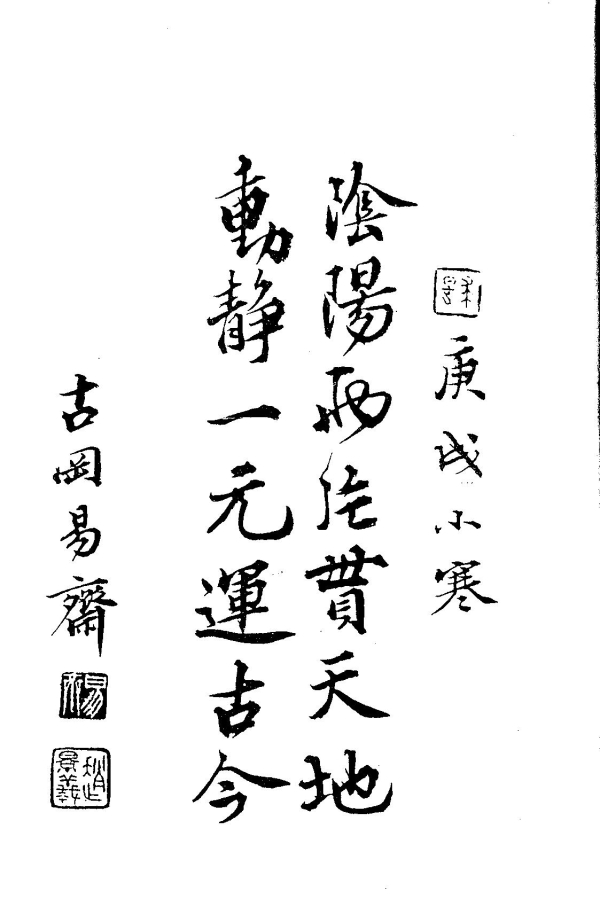 庚戌小寒
陰陽兩貫天地
動靜一元運古今
古岡易齋
易齋
趙景羲